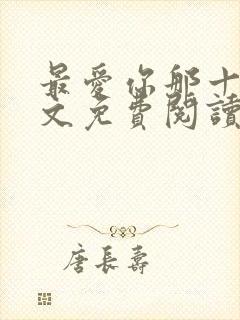 最愛你那十
文免費閱讀
唐長壽